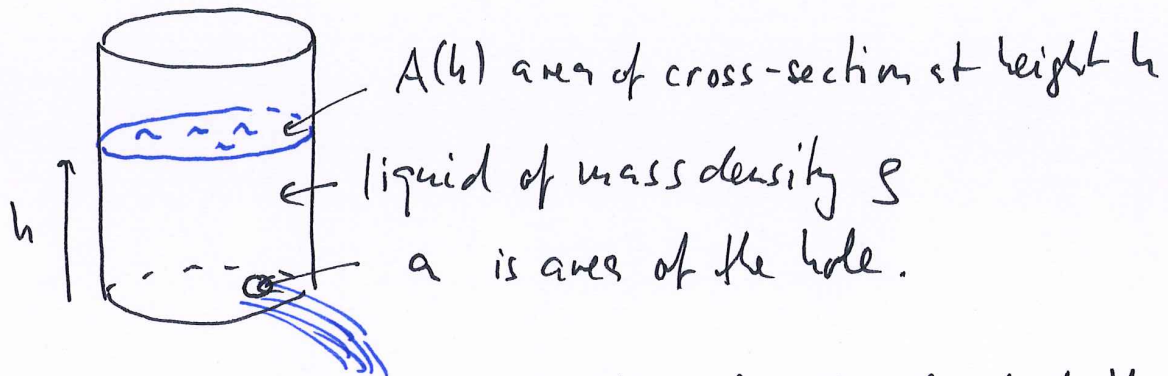 A(h) area of cross-section at height h
liquid of mass density ρ
h
a is area of the hole.